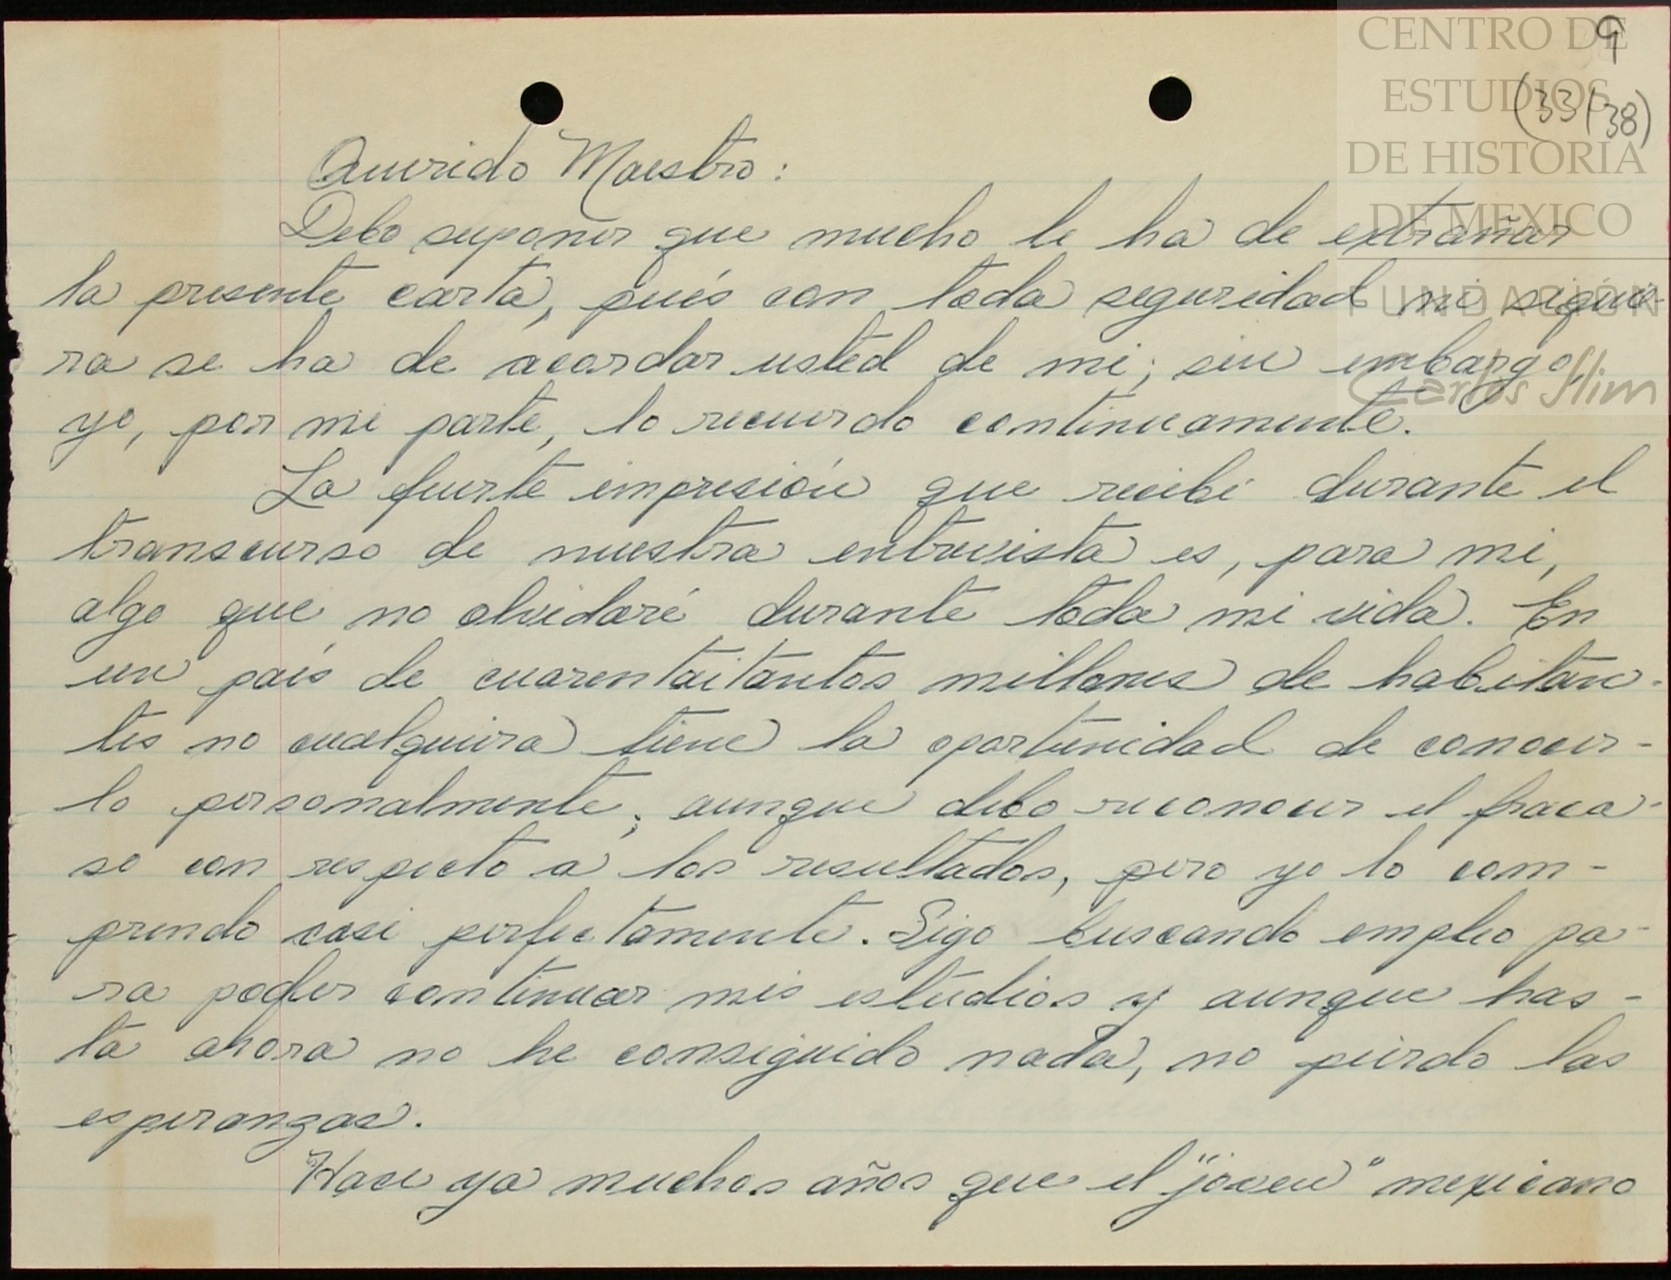 9
(33/38)
CENTRO DE
ESTUDIOS
DE HISTORIA
DE MÉXICO
FUNDACIÓN
Carlos Slim
Querido Maestro:
Debo suponer que mucho le ha de extrañar
la presente carta, pués con toda seguridad ni siquie-
ra se ha de acordar usted de mi; sin embargo,
yo, por mi parte, lo recuerdo continuamente.
La fuerte impresión que recibí durante el
transcurso de nuestra entrevista es, para mi,
algo que no olvidaré durante toda mi vida. En
un país de cuarentaitantos millones de habitan-
tes no cualquiera tiene la oportunidad de conocer-
lo personalmente; aunque debo reconocer el fraca-
so con respecto a los resultados, pero yo lo com-
prendo casi perfectamente. Sigo buscando empleo pa-
ra poder continuar mis estudios y aunque has-
ta ahora no he conseguido nada, no pierdo las
esperanzas.
Hace ya muchos años que el "joven" mexicano